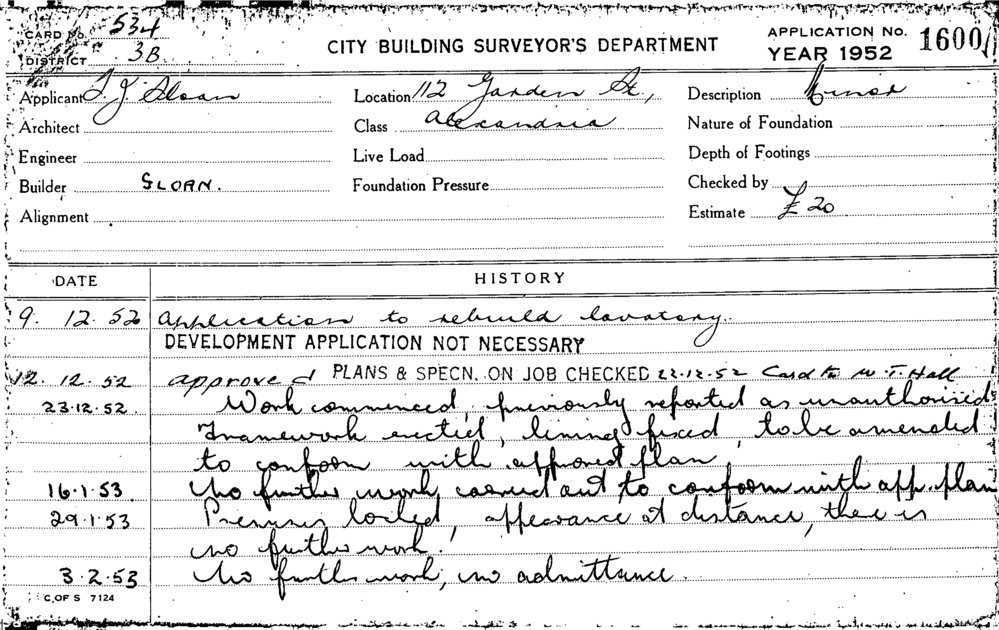 CARD No. 534
DISTRICT 3B.
CITY BUILDING SURVEYOR'S DEPARTMENT
APPLICATION No. 1600/
YEAR 1952
Applicant T. J. Sloan Location 112 Garden St., Description Minor
Architect Class Alexandria Nature of Foundation
Engineer Live Load Depth of Footings
Builder SLOAN. Foundation Pressure Checked by
Alignment Estimate £20
DATE HISTORY
9. 12. 52 Application to rebuild lavatory.
DEVELOPMENT APPLICATION NOT NECESSARY
12. 12. 52 approved PLANS & SPECN. ON JOB CHECKED 22.12.52 Card to W. T. Hall
23.12.52. Work commenced, previously reported as unauthorised.
Framework erected, lining fixed, to be amended
to conform with approved plan
16.1.53. No further work carried out to conform with app. plan
29.1.53 Premises locked, appearance at distance, there is
no further work.
3.2.53 No further work, no admittance.
C. OF S 7124